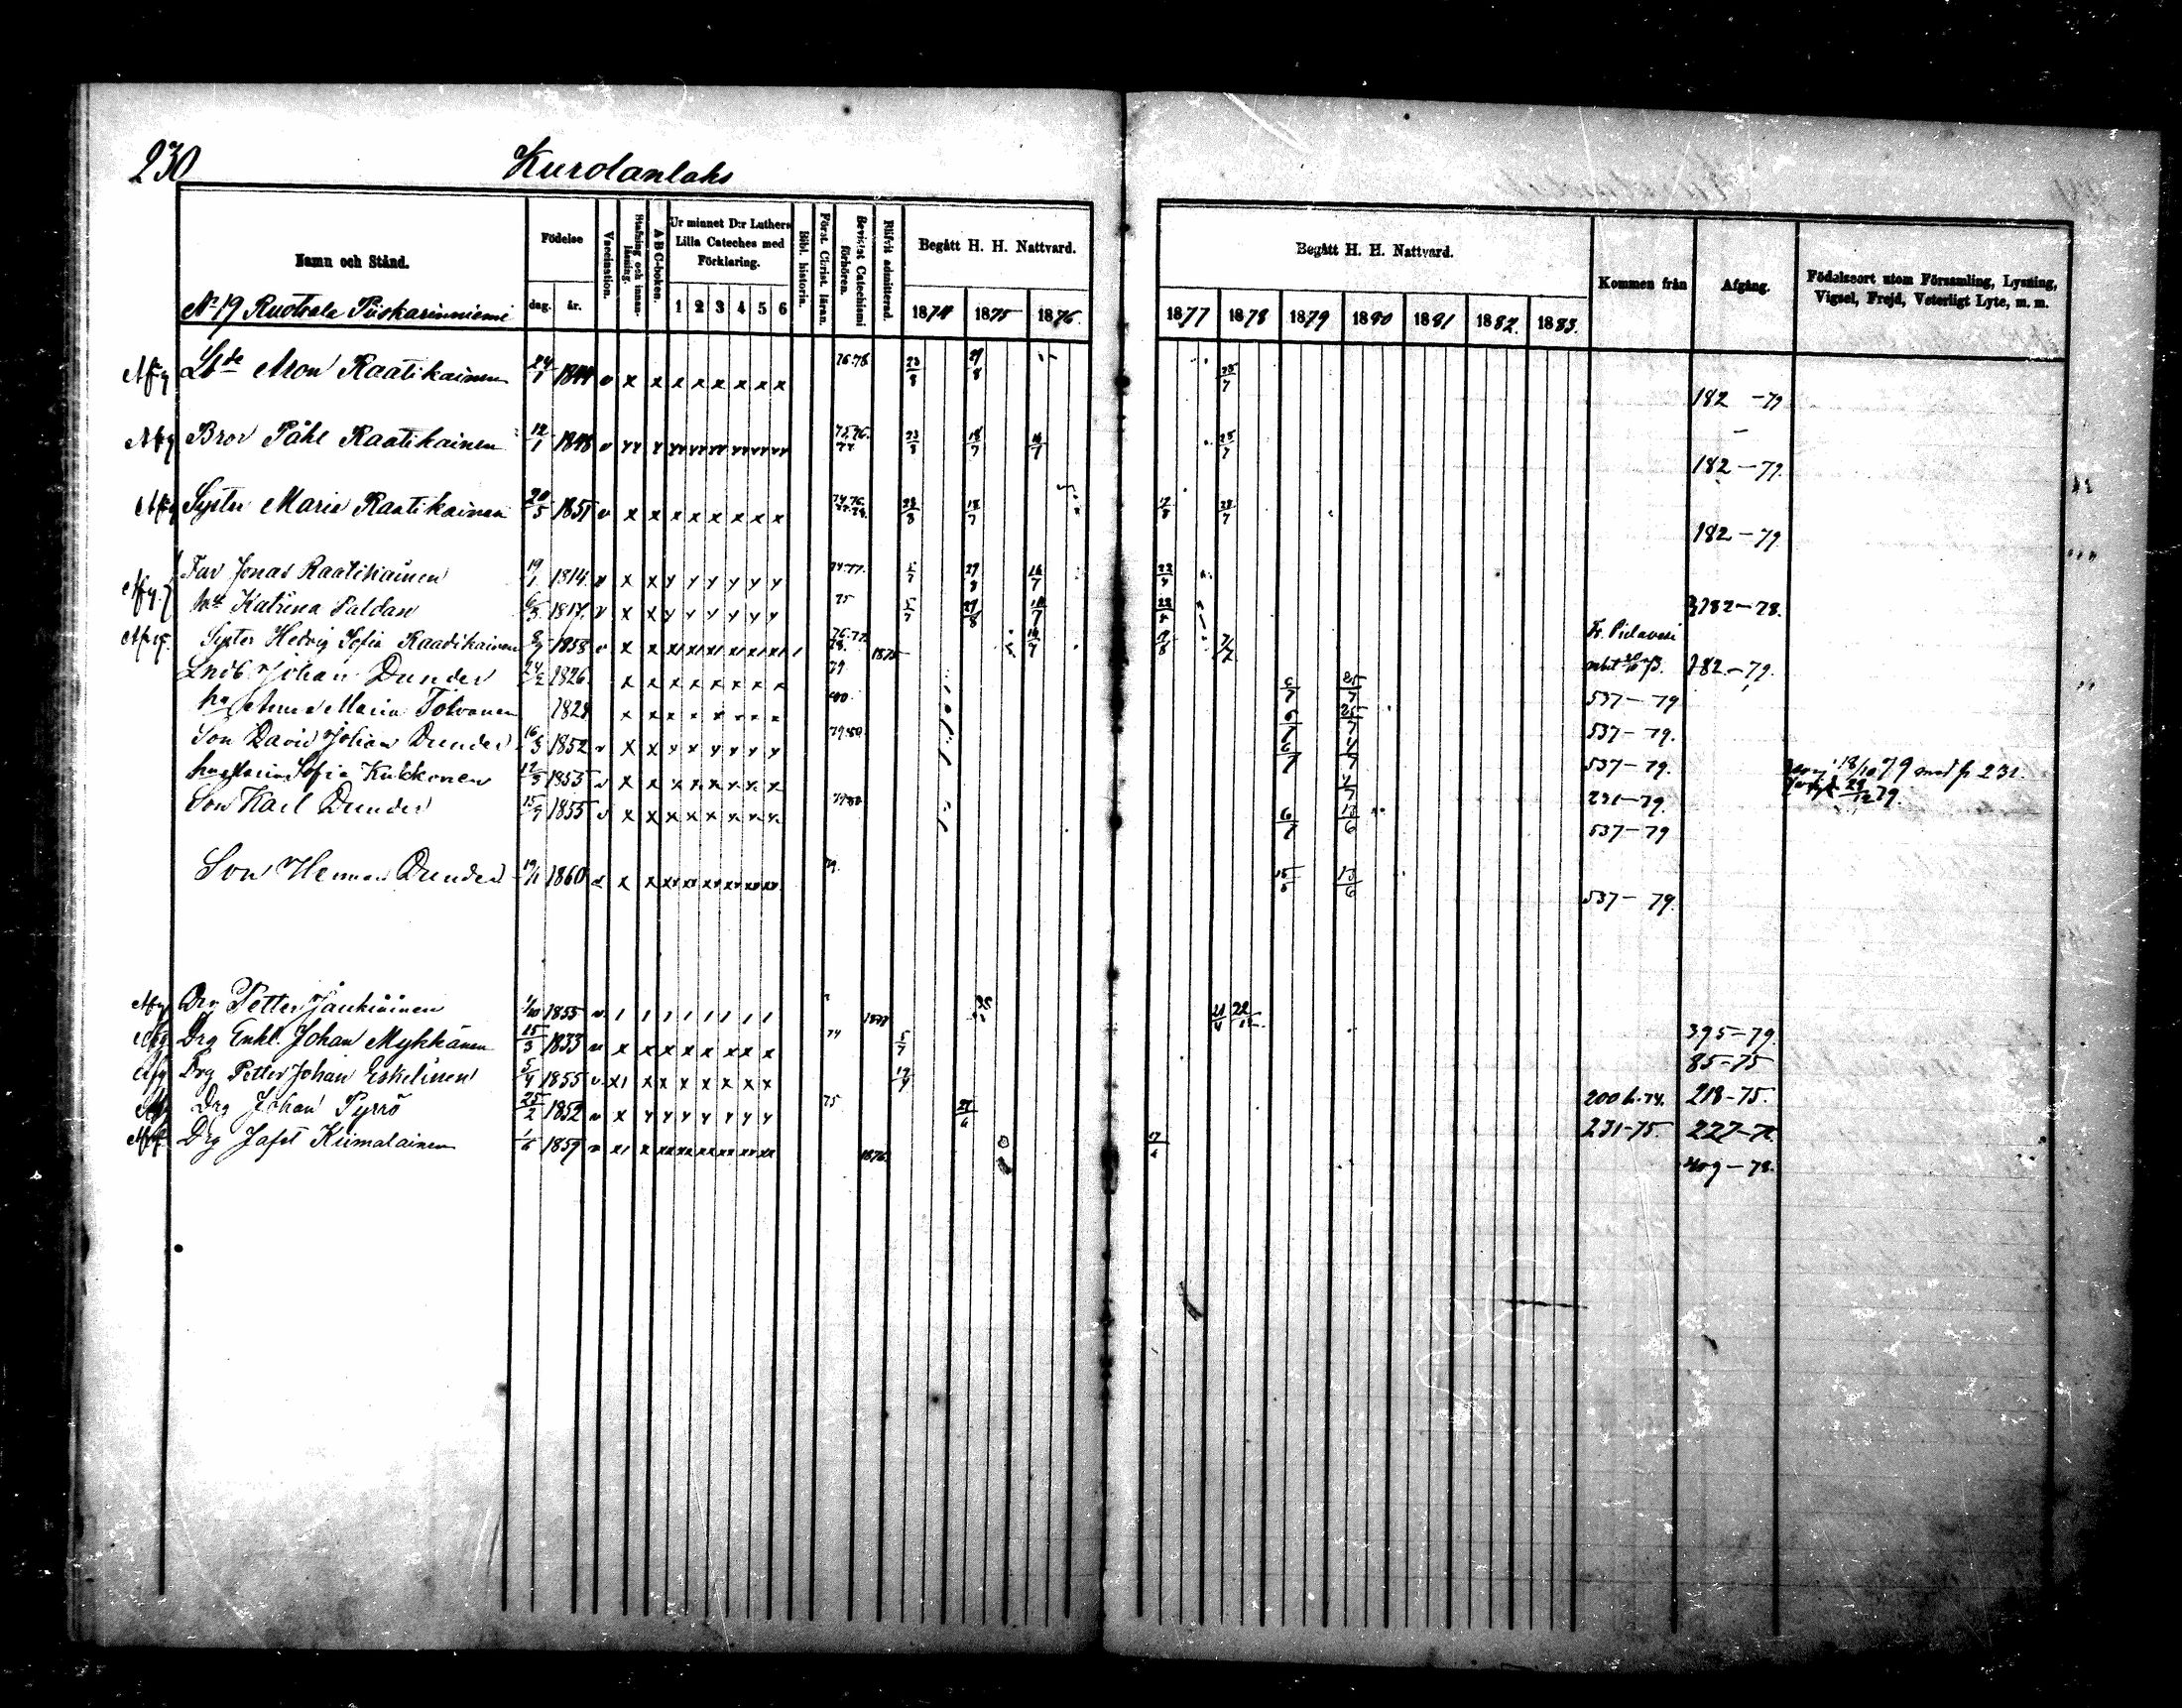 230 Kurolanlaks
Namn och Stånd.
Födelse
dag. år.
Vaccination.
Stafning och innan-läsning.
A B C-boken.
Ur minnet D:r Luthers Lilla Cateches med Förklaring.
1 2 3 4 5 6
Bibl. historia.
Först. Christ. läran.
Bevistat Catechismi förhören.
Blifvit admitterad.
Begått H. H. Nattvard.
1874 1875 1876
Begått H. H. Nattvard.
1877 1878 1879 1880 1881 1882 1883
Kommen från
Afgång.
Födelseort utom Församling, Lysning, Vigsel, Frejd, Veterligt Lyte, m. m.
No 19 Ruotsala Piiskarinniemi
Afg Lbde Aron Raatikainen 24/1 1844 v x x x x x x x x 76.78 23/8 29/8 28/7 182 - 79
Afg Bror Påhl Raatikainen 12/1 1848 v 75.76. 77 23/8 18/7 16/7 28/7 182 - 79.
Afg Syster Maria Raatikainen 20/5 1851 v x x x x x x x x 23/8 18/7 17/8 28/7 182 - 79
Afg. Far Jonas Raatikainen 19/1 1814 v x x y y y y y y 74.77. 5/7 29/8 16/7 22/7
hu Katrina Paldan 6/3 1817. v x x y y y y y y 75 5/7 29/8 16/7 22/7 382 - 78.
Afg. Syster Hedvig Sofia Raadikainen 8/7 1858 v x x 76.77. 78. 1875 16/7 19/8 7/7 Fr. Pielavesi 73. 382 - 79.
Lndb Johan Dunder 24/2 1826 x x x x x x x x 79 6/7 25/7 537 - 79
hu Anna Maria Tolvanen 1828 x x x x x x x x 80 6/7 25/7 537 - 79.
Son David Johan Dunder 16/3 1852 v x x x x y y y y 79.80 6/7 4/7 537 - 79.
hu Maria Sofia Kukkonen 12/3 1853 v x x x x x x x x 4/7 231 - 79. 18/10 79 med fr 231. 29/12 79.
Son Karl Dunder 15/9 1855 v x x x x x x x x 79.80 6/7 13/6 537 - 79
Son Herman Dunder 19/11 1860 v x x 79. 15/5 13/6 537 - 79.
Afg Drg Petter Jauhiainen 1/10 1855 v 1878 21/4 22/12 395 - 79.
Afg Drg Enkl. Johan Mykkänen 15/3 1833 v x x x x x x x x 74 5/7 85 - 75
Afg Drg Petter Johan Eskelinen 5/4 1855 v x x x x x x x x 12/4 200 b. 74. 218 - 75.
Afg Drg Johan Pyrrö 25/2 1852 v x y y y y y y y 75 29/6 231 - 75. 227 - 76
Afg Drg Jafet Kiimalainen 1/6 1859 v 1876. 17/6 409 - 78.